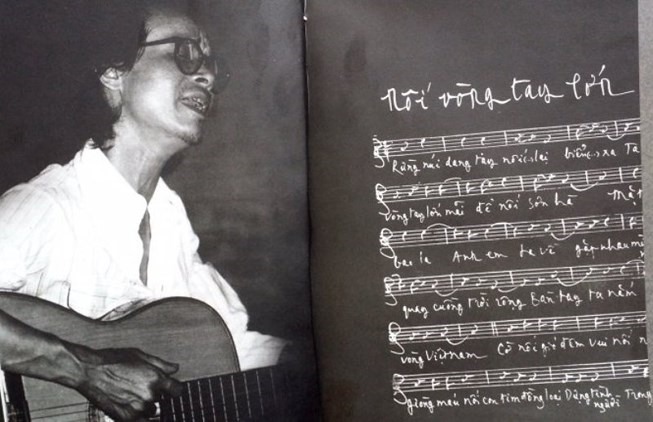 Nối vòng tay lớn
Rừng núi dang tay nối lại biển xa Ta
vòng tay lớn mãi để nối sơn hà Mặt
bao la Anh em ta về gặp nhau
quay cuồng trời rộng Bàn tay ta nắm
vòng Việt Nam Cờ nối gió đêm vui nối
giòng máu nối con tim đồng loại Dựng tình
người Trong